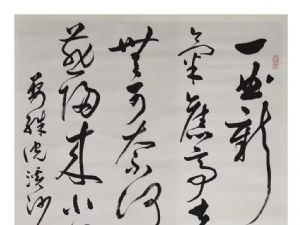 一曲新
氣舊亭
無可奈何
燕歸來小
晏殊浣溪沙